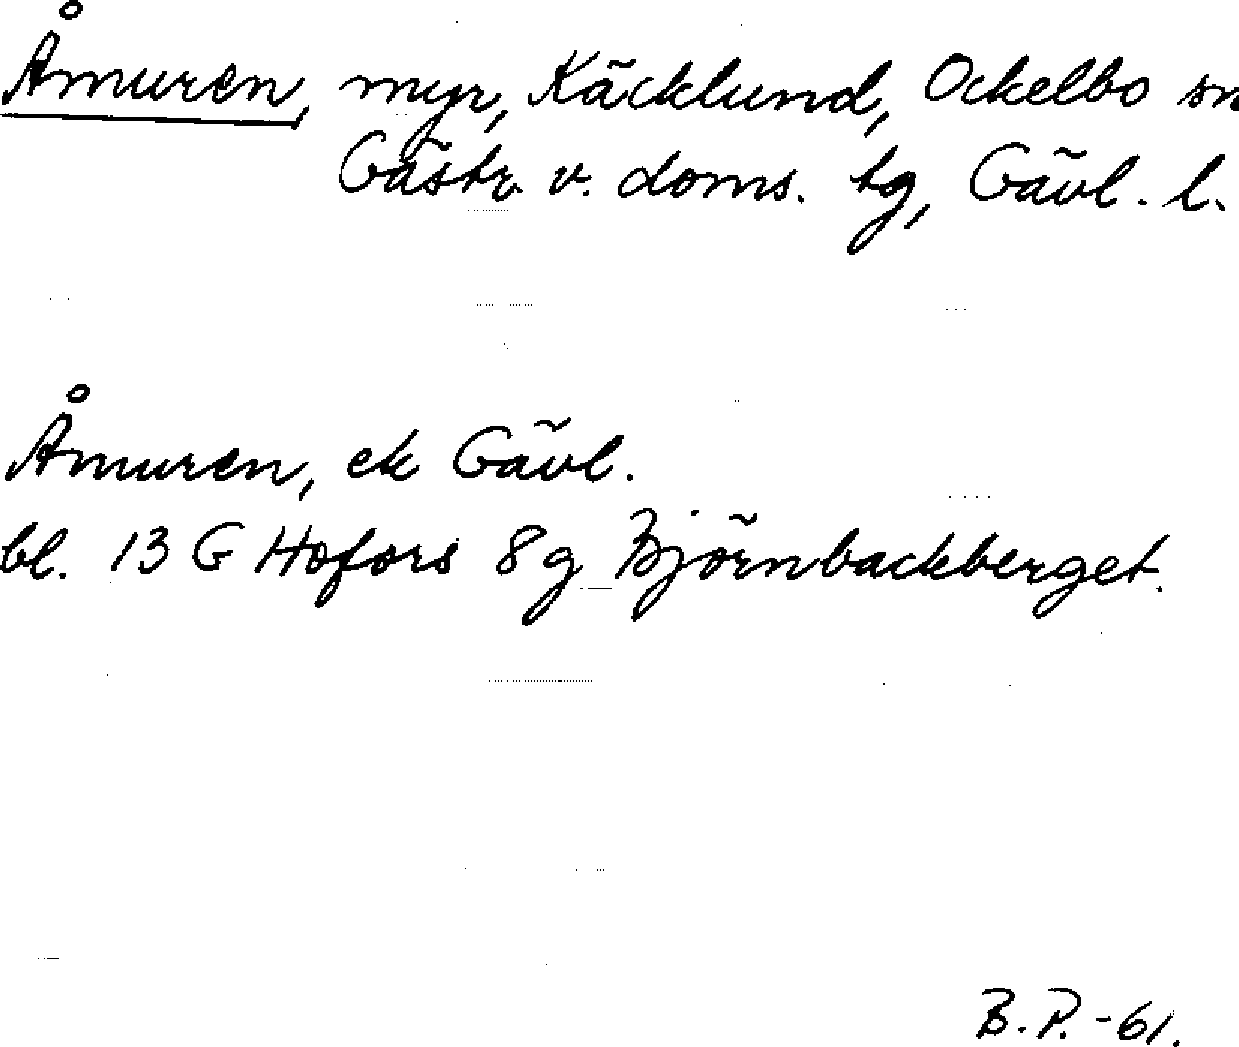 Åmuren, myr, Käcklund, Ockelbo sn
Gästr. v. doms. tg, Gävl. l.
Åmuren, ek Gävl.
bl. 13 G Hofors 8g Björnbackberget.
B.P.-61.